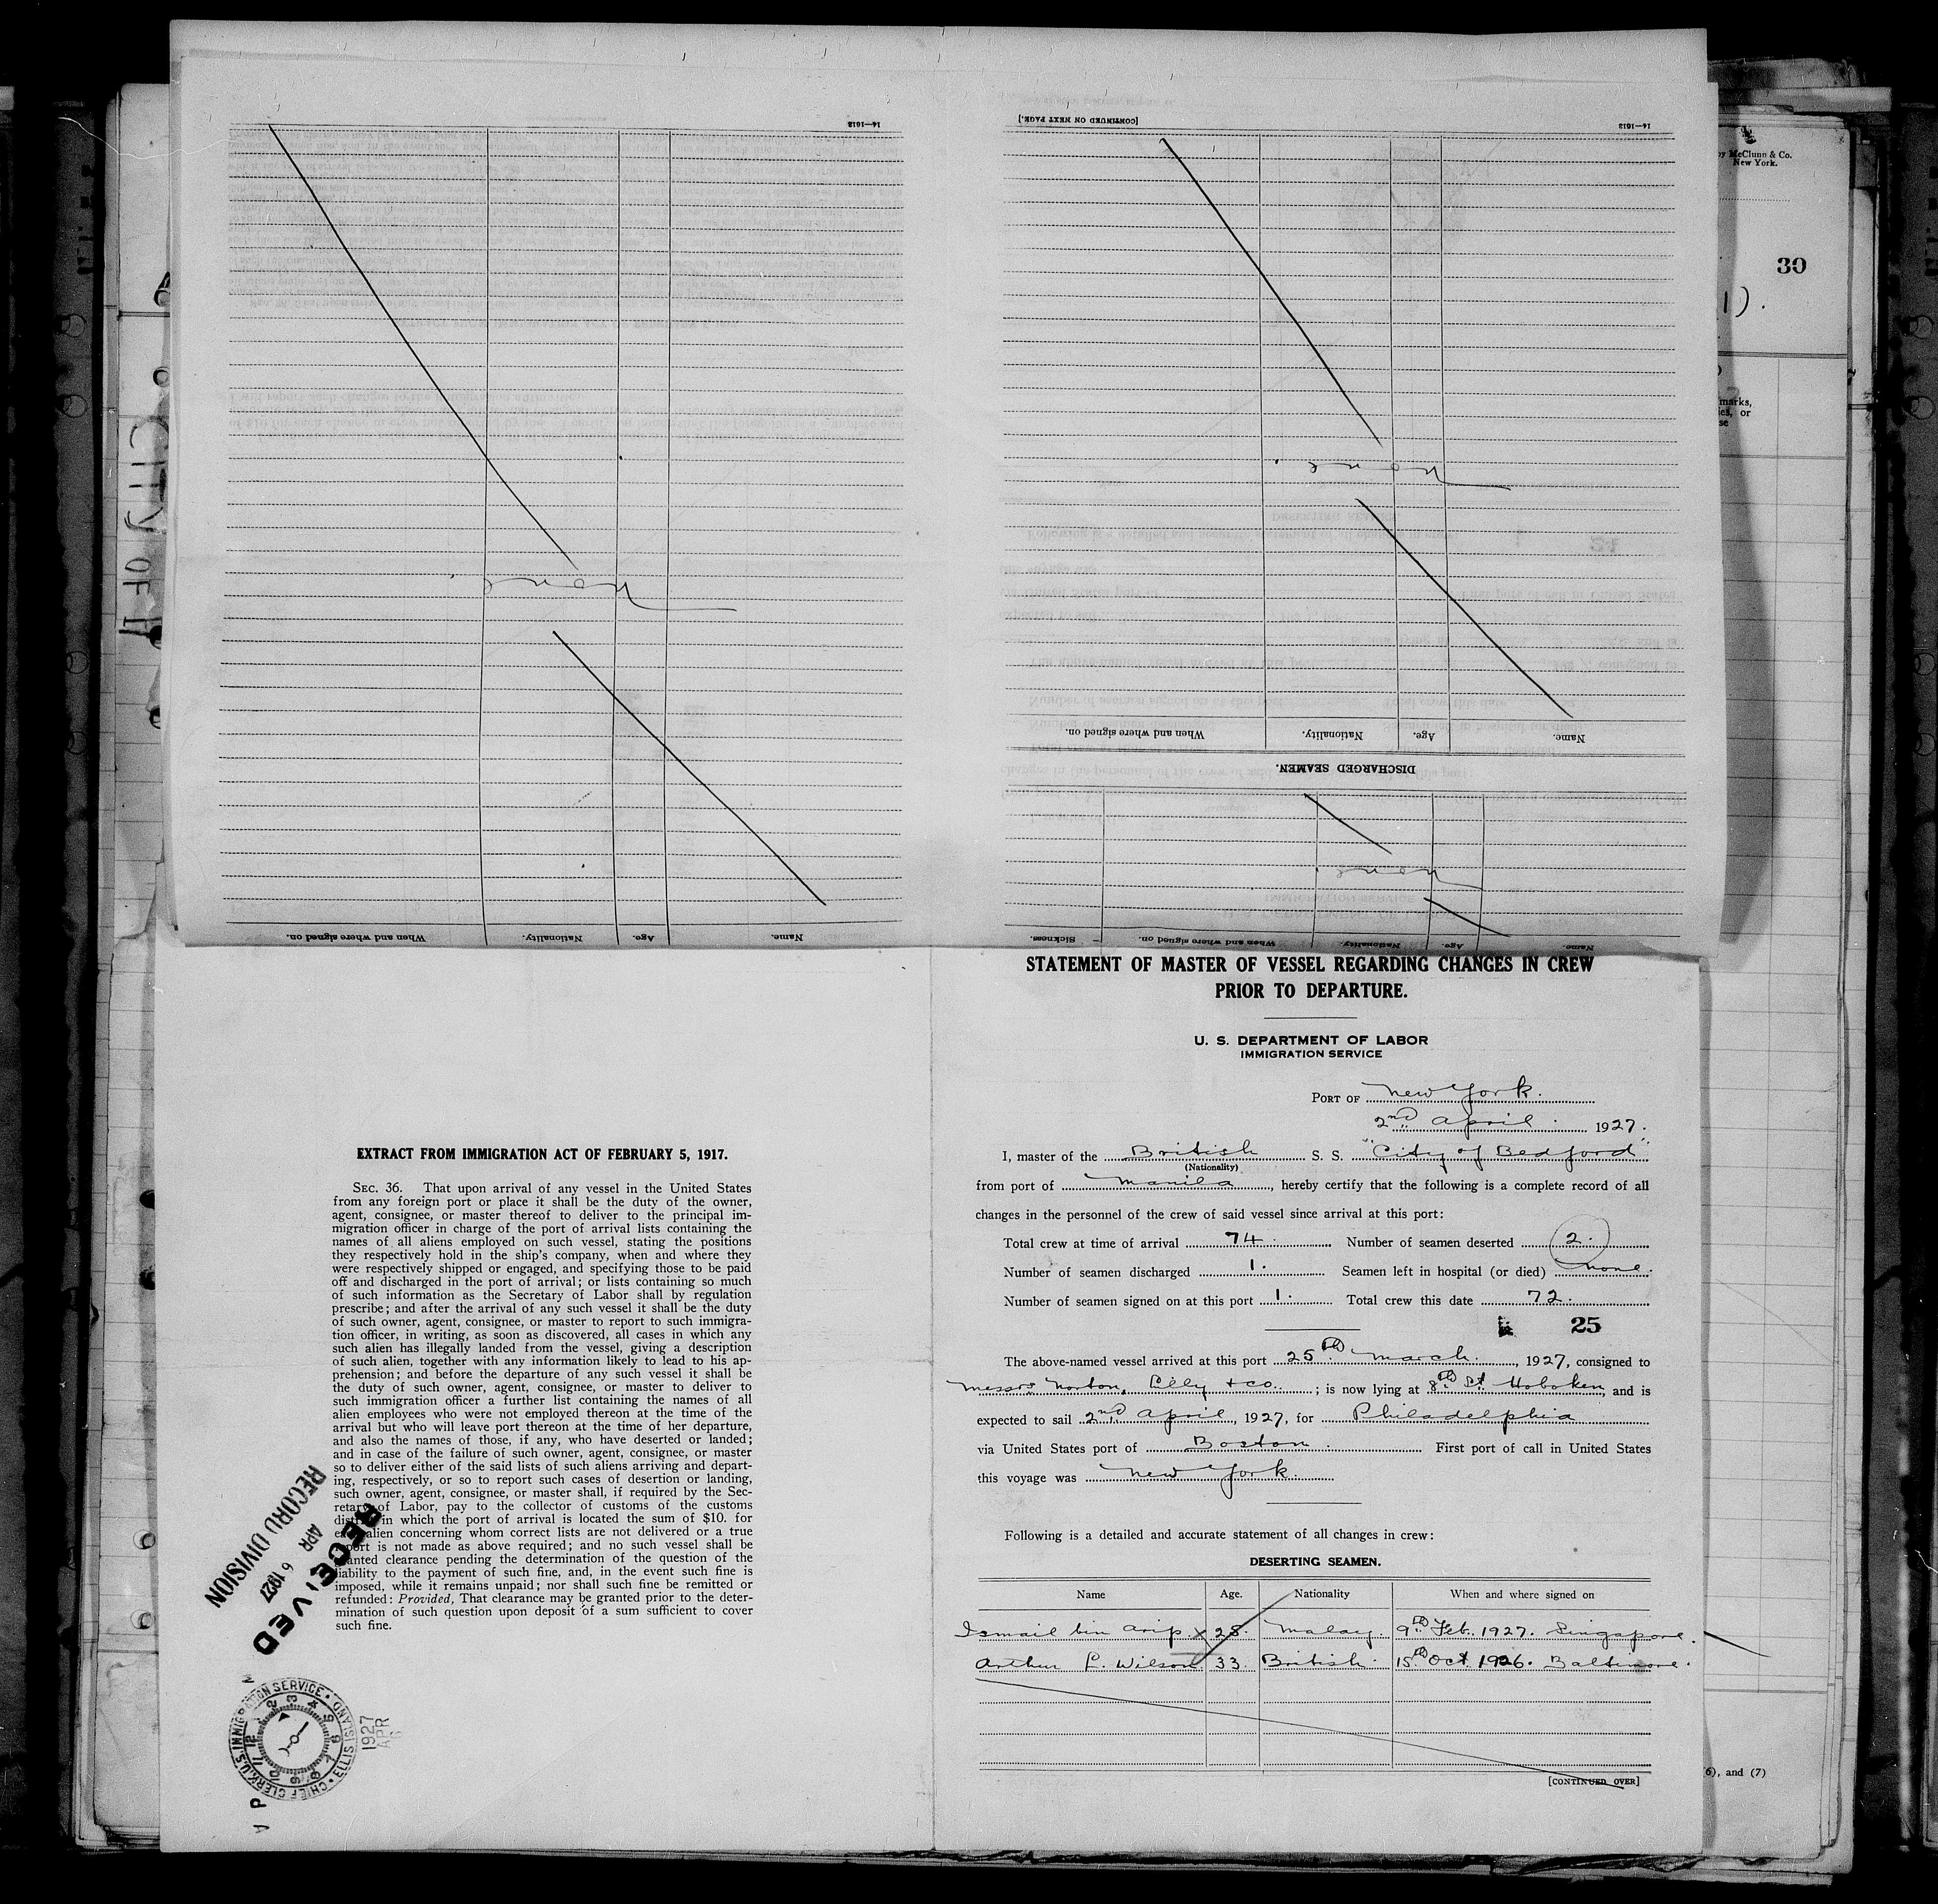 by McClunn & Co.
New York.
30
1).
marks,
ies, or
se
CITY OF
14—1613
none.
Name. Age. Nationality. When and where signed on.
[CONTINUED ON NEXT PAGE.]
14—1613
none.
Name. Age. Nationality. When and where signed on.
DISCHARGED SEAMEN.
none.
Name Age. Nationality. When and where signed on. Sickness.
EXTRACT FROM IMMIGRATION ACT OF FEBRUARY 5, 1917.
SEC. 36. That upon arrival of any vessel in the United States
from any foreign port or place it shall be the duty of the owner,
agent, consignee, or master thereof to deliver to the principal im-
migration officer in charge of the port of arrival lists containing the
names of all aliens employed on such vessel, stating the positions
they respectively hold in the ship's company, when and where they
were respectively shipped or engaged, and specifying those to be paid
off and discharged in the port of arrival; or lists containing so much
of such information as the Secretary of Labor shall by regulation
prescribe; and after the arrival of any such vessel it shall be the duty
of such owner, agent, consignee, or master to report to such immigra-
tion officer, in writing, as soon as discovered, all cases in which any
such alien has illegally landed from the vessel, giving a description
of such alien, together with any information likely to lead to his ap-
prehension; and before the departure of any such vessel it shall be
the duty of such owner, agent, consignee, or master to deliver to
such immigration officer a further list containing the names of all
alien employees who were not employed thereon at the time of the
arrival but who will leave port thereon at the time of her departure,
and also the names of those, if any, who have deserted or landed;
and in case of the failure of such owner, agent, consignee, or master
so to deliver either of the said lists of such aliens arriving and depart-
ing, respectively, or so to report such cases of desertion or landing,
such owner, agent, consignee, or master shall, if required by the Sec-
retary of Labor, pay to the collector of customs of the customs
district in which the port of arrival is located the sum of $10. for
each alien concerning whom correct lists are not delivered or a true
report is not made as above required; and no such vessel shall be
granted clearance pending the determination of the question of the
liability to the payment of such fine, and, in the event such fine is
imposed, while it remains unpaid; nor shall such fine be remitted or
refunded: Provided, That clearance may be granted prior to the deter-
mination of such question upon deposit of a sum sufficient to cover
such fine.
RECEIVED
APR 6 1927
RECORD DIVISION
U.S. IMMIGRATION SERVICE • ELLIS ISLAND • CHIEF CLERK
1927
APR
STATEMENT OF MASTER OF VESSEL REGARDING CHANGES IN CREW
PRIOR TO DEPARTURE.
U. S. DEPARTMENT OF LABOR
IMMIGRATION SERVICE
PORT OF New York.
2nd April 1927.
I, master of the British S. S. "City of Bedford"
(Nationality)
from port of Manila, hereby certify that the following is a complete record of all
changes in the personnel of the crew of said vessel since arrival at this port:
Total crew at time of arrival 74. Number of seamen deserted 2.
Number of seamen discharged 1. Seamen left in hospital (or died) none.
Number of seamen signed on at this port 1. Total crew this date 72.
25
The above-named vessel arrived at this port 25th March, 1927, consigned to
Messrs Norton, Lilly & Co.; is now lying at 8th St. Hoboken, and is
expected to sail 2nd April, 1927, for Philadelphia
via United States port of Boston. First port of call in United States
this voyage was New York.
Following is a detailed and accurate statement of all changes in crew:
DESERTING SEAMEN.
Name Age. Nationality When and where signed on
Ismail bin Arip. 28. Malay. 9th Feb. 1927. Singapore.
Arthur L. Wilson 33. British. 15th Oct. 1926. Baltimore.
[CONTINUED OVER]
6), and (7)